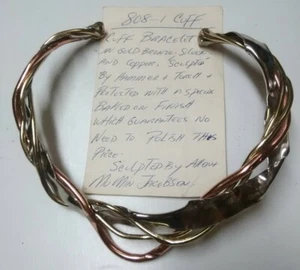 808-1 Cuff
Cuff Bracelet
in Gold Bronze, Silver
and Copper, Sculpted
By Hammer & Torch &
Protected with a special
Baked on Finish
which guarantees no
need to Polish this
Piece.
Sculpted By
Jacobson